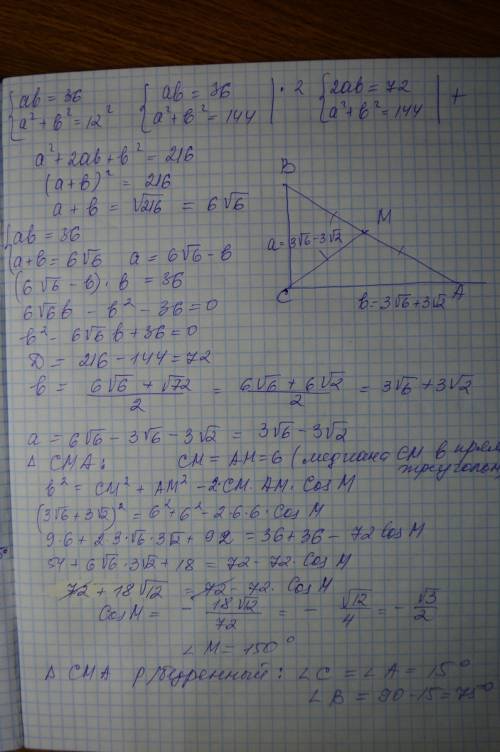 {ab = 36      {ab = 36      | · 2   {2ab = 72      | +
{a² + b² = 12²   {a² + b² = 144 |   {a² + b² = 144 |
a² + 2ab + b² = 216
(a + b)² = 216
a + b = √216 = 6√6
{ab = 36
{a + b = 6√6   a = 6√6 - b
(6√6 - b) · b = 36
6√6b - b² - 36 = 0
b² - 6√6b + 36 = 0
D = 216 - 144 = 72
b = (6√6 + √72)/2 = (6√6 + 6√2)/2 = 3√6 + 3√2
B
M
a = 3√6 - 3√2
C
A
b = 3√6 + 3√2
a = 6√6 - 3√6 - 3√2 = 3√6 - 3√2
Δ CMA:   CM = AM = 6 (медиана CM в прям
треугольн
b² = CM² + AM² - 2·CM·AM·Cos M
(3√6 + 3√2)² = 6² + 6² - 2·6·6·Cos M
9·6 + 2·3·√6·3√2 + 9·2 = 36 + 36 - 72 Cos M
54 + 6√6·3√2 + 18 = 72 - 72·Cos M
72 + 18√12 = 72 - 72·Cos M
Cos M = - 18√12/72 = - √12/4 = - √3/2
∠M = 150°
Δ CMA р/бедренный: ∠C = ∠A = 15°
∠B = 90 - 15 = 75°